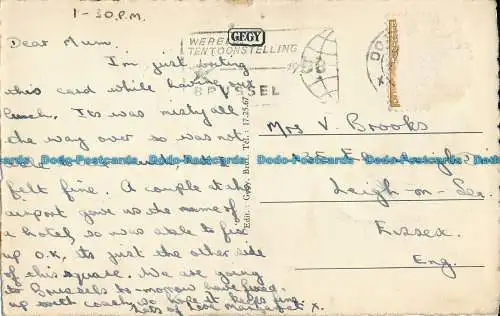 1-30 P.M.
Dear Mum.
I'm just writing
this card while having our
lunch. Its was misty all
the way over so was not
felt fine. A couple at the
airport gave us the name of
a hotel so was able to fix
up O.K, its just the other side
of this square. We are going
to Brussels to-morrow have fixed
up with coach, so hope it keeps fine.
Lots of Love Margaret x.
GEGY
TENTOONSTELLING
58
BRUSSEL
Edit.: Gegy, Brul. Tél.: 17.25.67
Mrs V. Brooks
Leigh-on-Sea
Essex.
Eng.
Dodo-Postcards Dodo-Postcards Dodo-Postcards Dodo-Postcards